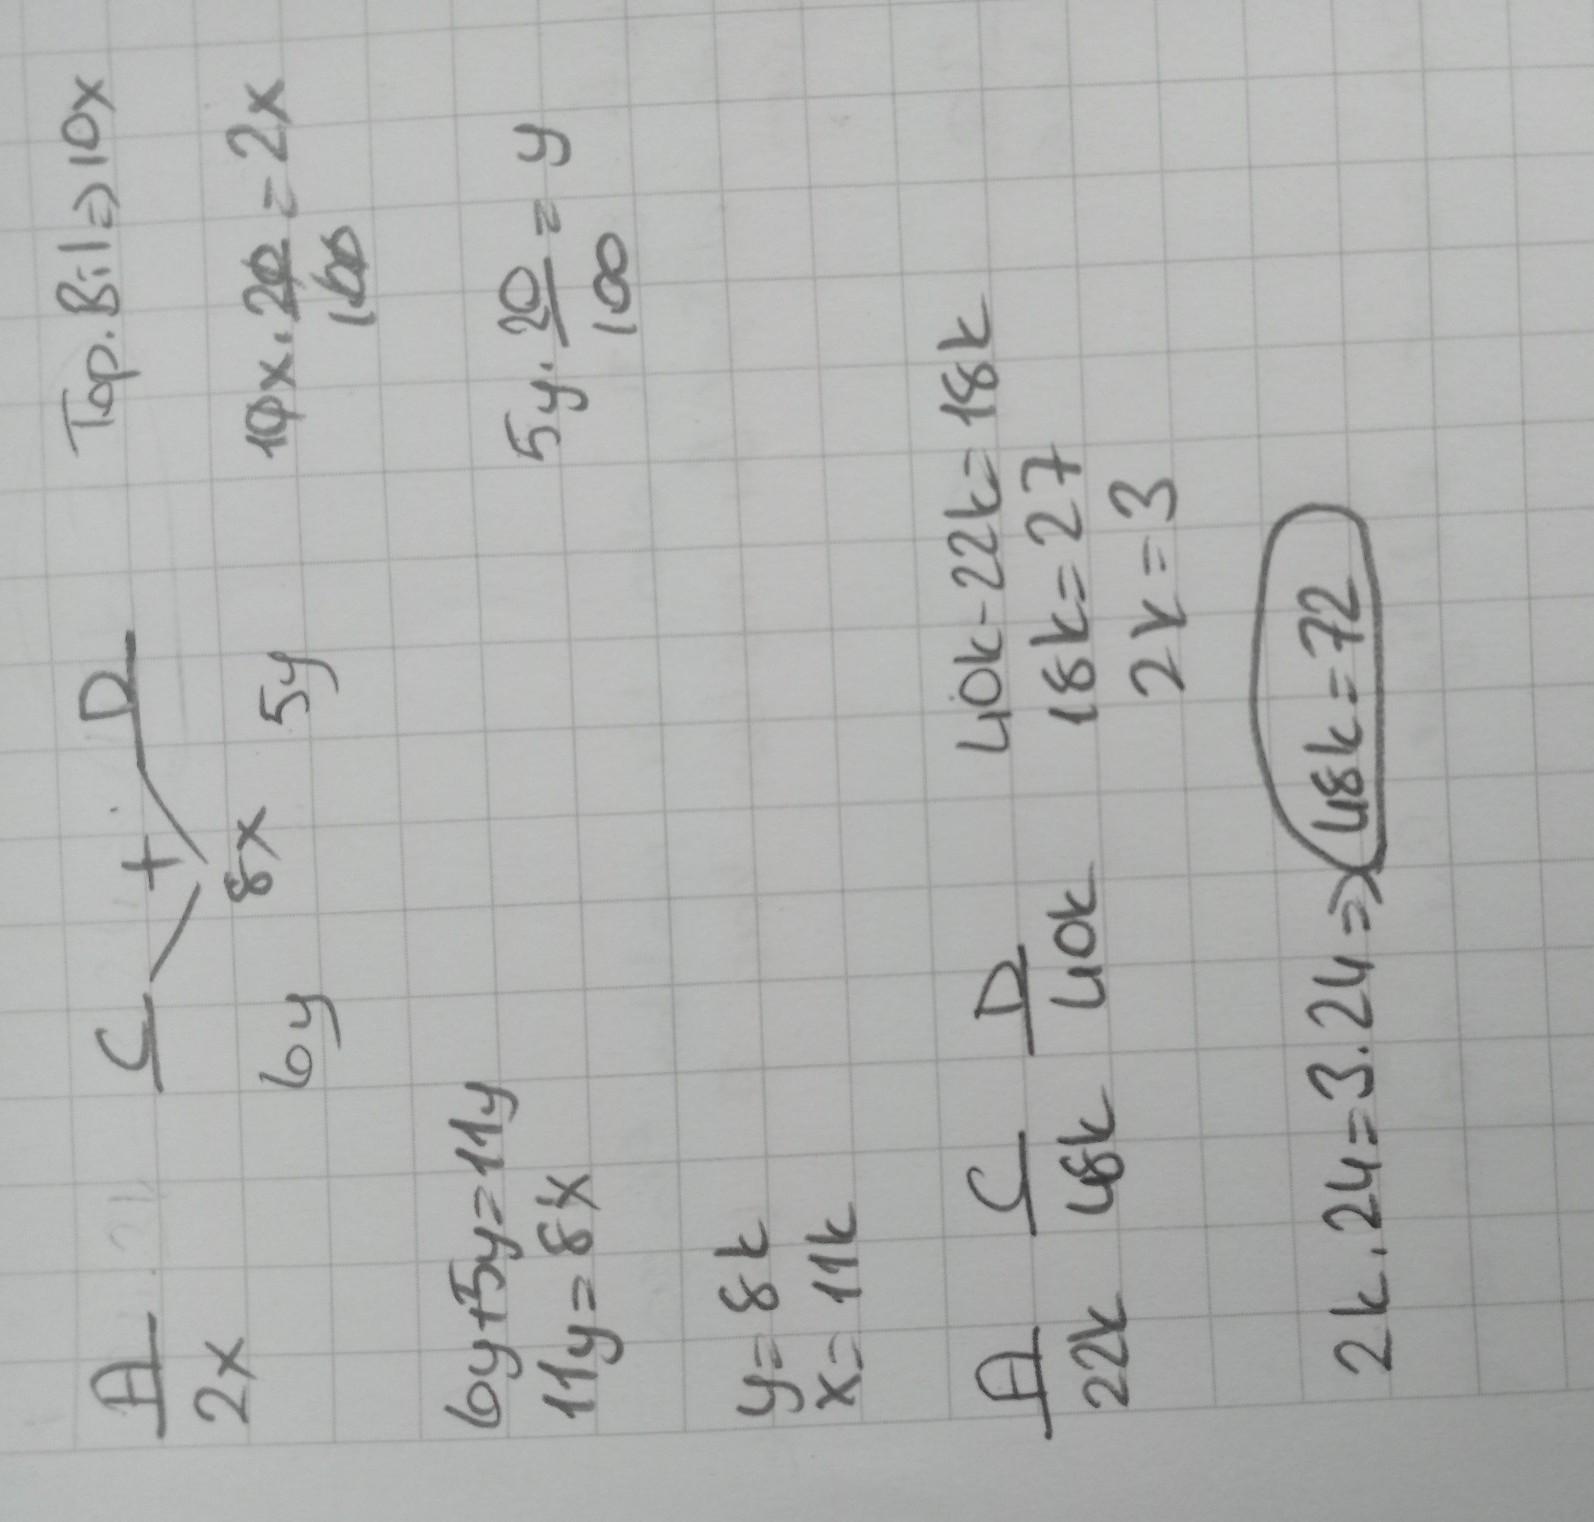 A C + D Top.Bil=>10x
2x 8x 10x.20/100=2x
6y 5y
6y+5y=11y 5y.20/100=y
11y=8x
y=8k
x=11k
A C D 40k-22k=18k
22k 48k 40k 18k=27
2k=3
2k.24=3.24=>48k=72